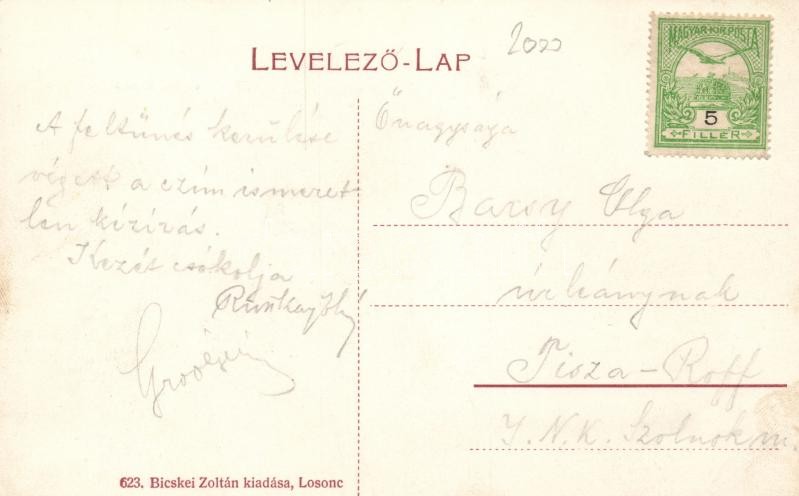 2000
LEVELEZŐ-LAP
MAGYAR·KIR·POSTA
5
FILLÉR
A feltünés kerülése
végett a czím ismeret
len kézírás.
Kezét csókolja
Őnagysága
Barsy Olga
úrleánynak
Tisza-Roff
J. N. K. Szolnok m.
623. Bicskei Zoltán kiadása, Losonc